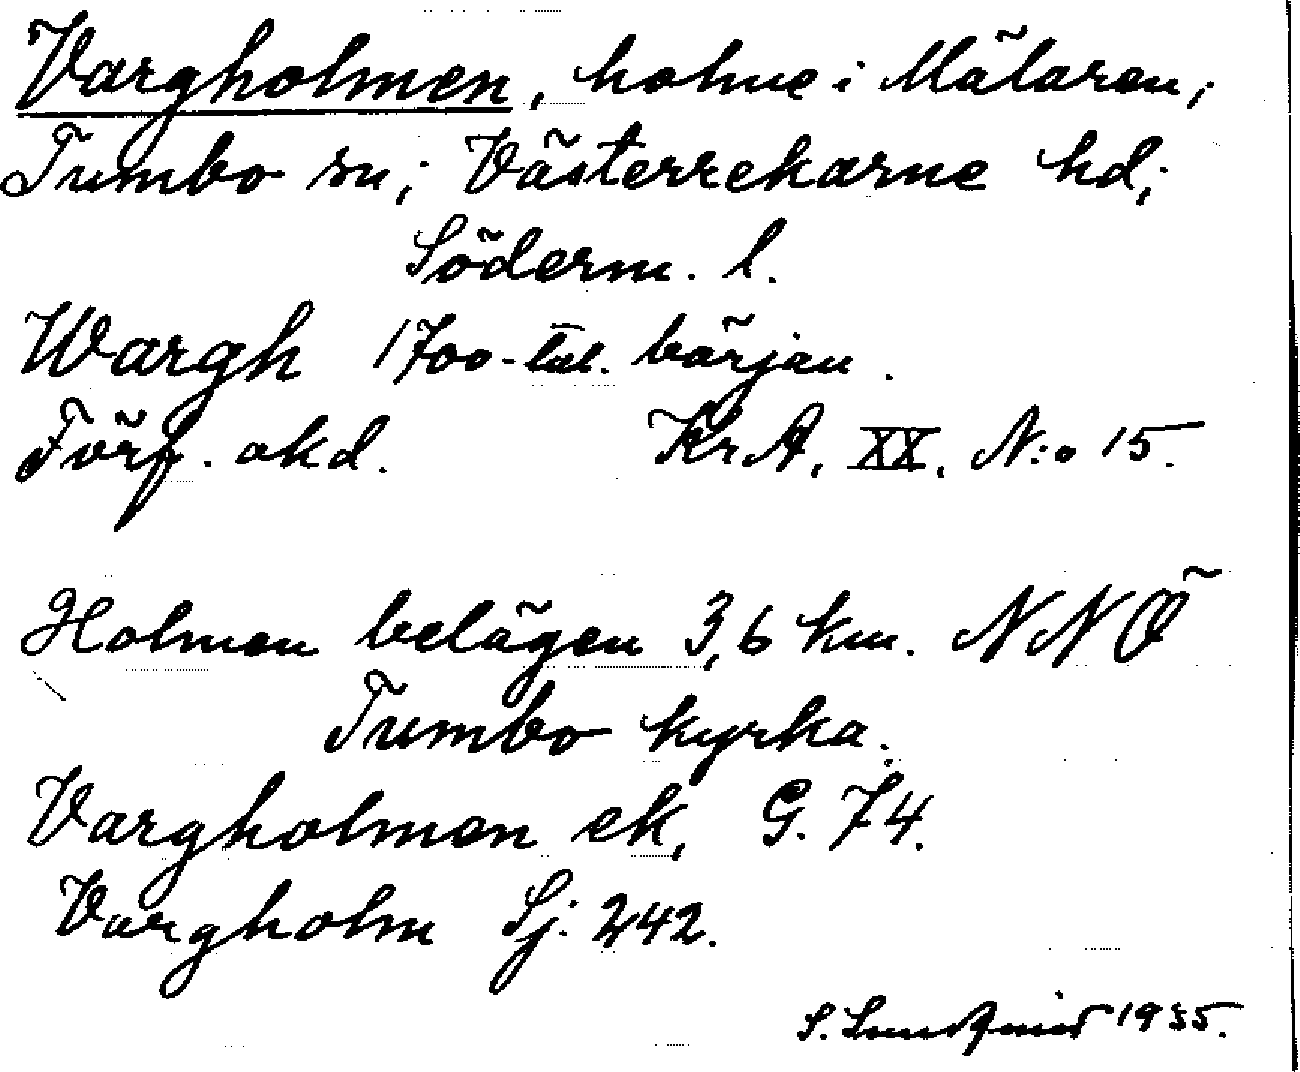 Vargholmen, holme i Mälaren,
Tumbo sn; Västerrekarne hd;
Söderm. l.
Wargh 1700-tal. början.
Förf. okd. KrA, XX, N:o 15.
Holmen belägen 3,6 km. NNÖ
Tumbo kyrka.
Vargholmen ek, G. 74.
Vargholm Sj. 242.
S. Lundqvist 1935.